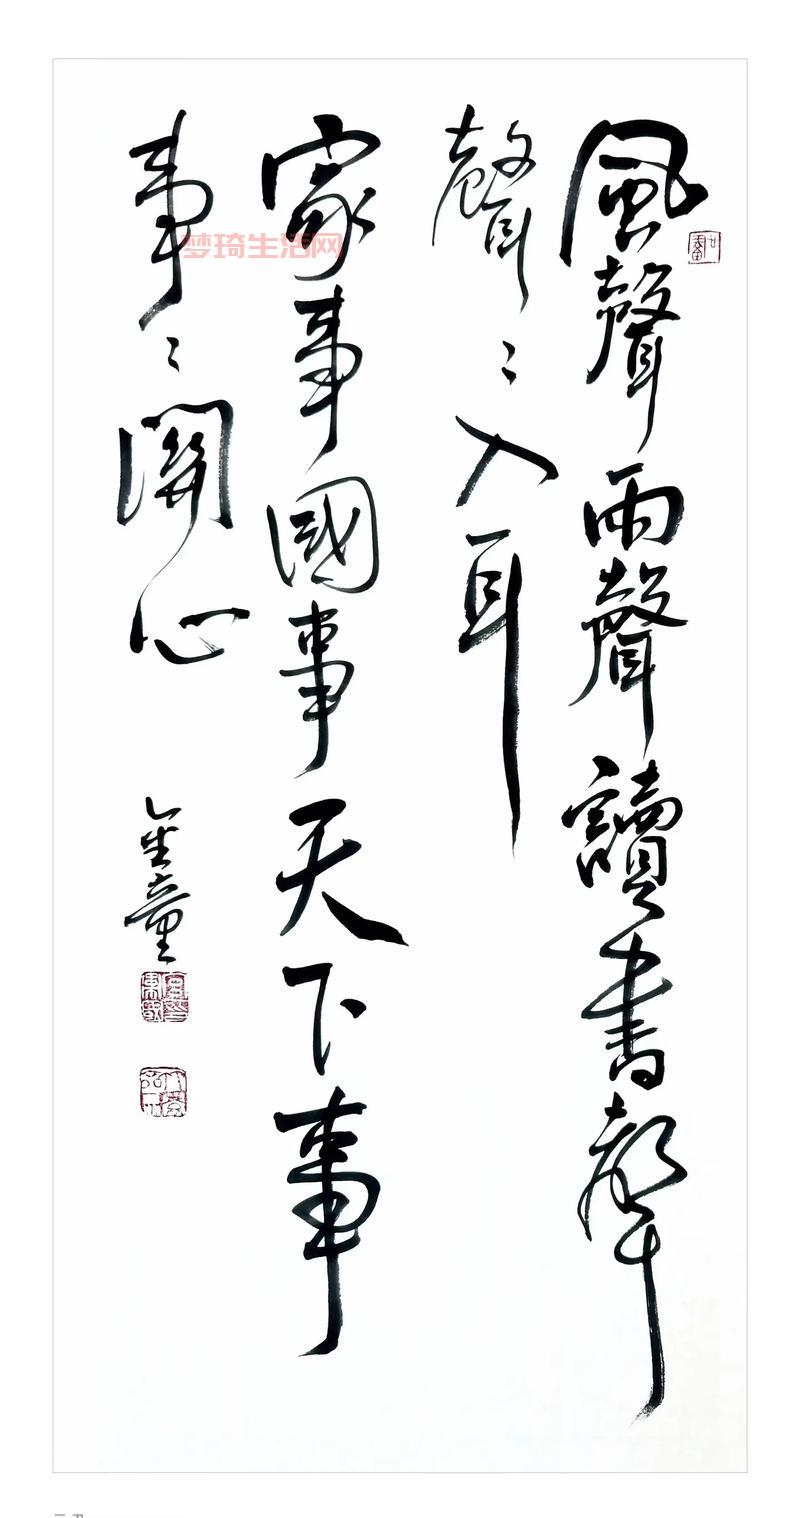 風聲雨聲讀書聲
聲〻入耳
家事國事天下事
事〻關心
金童
梦琦生活网